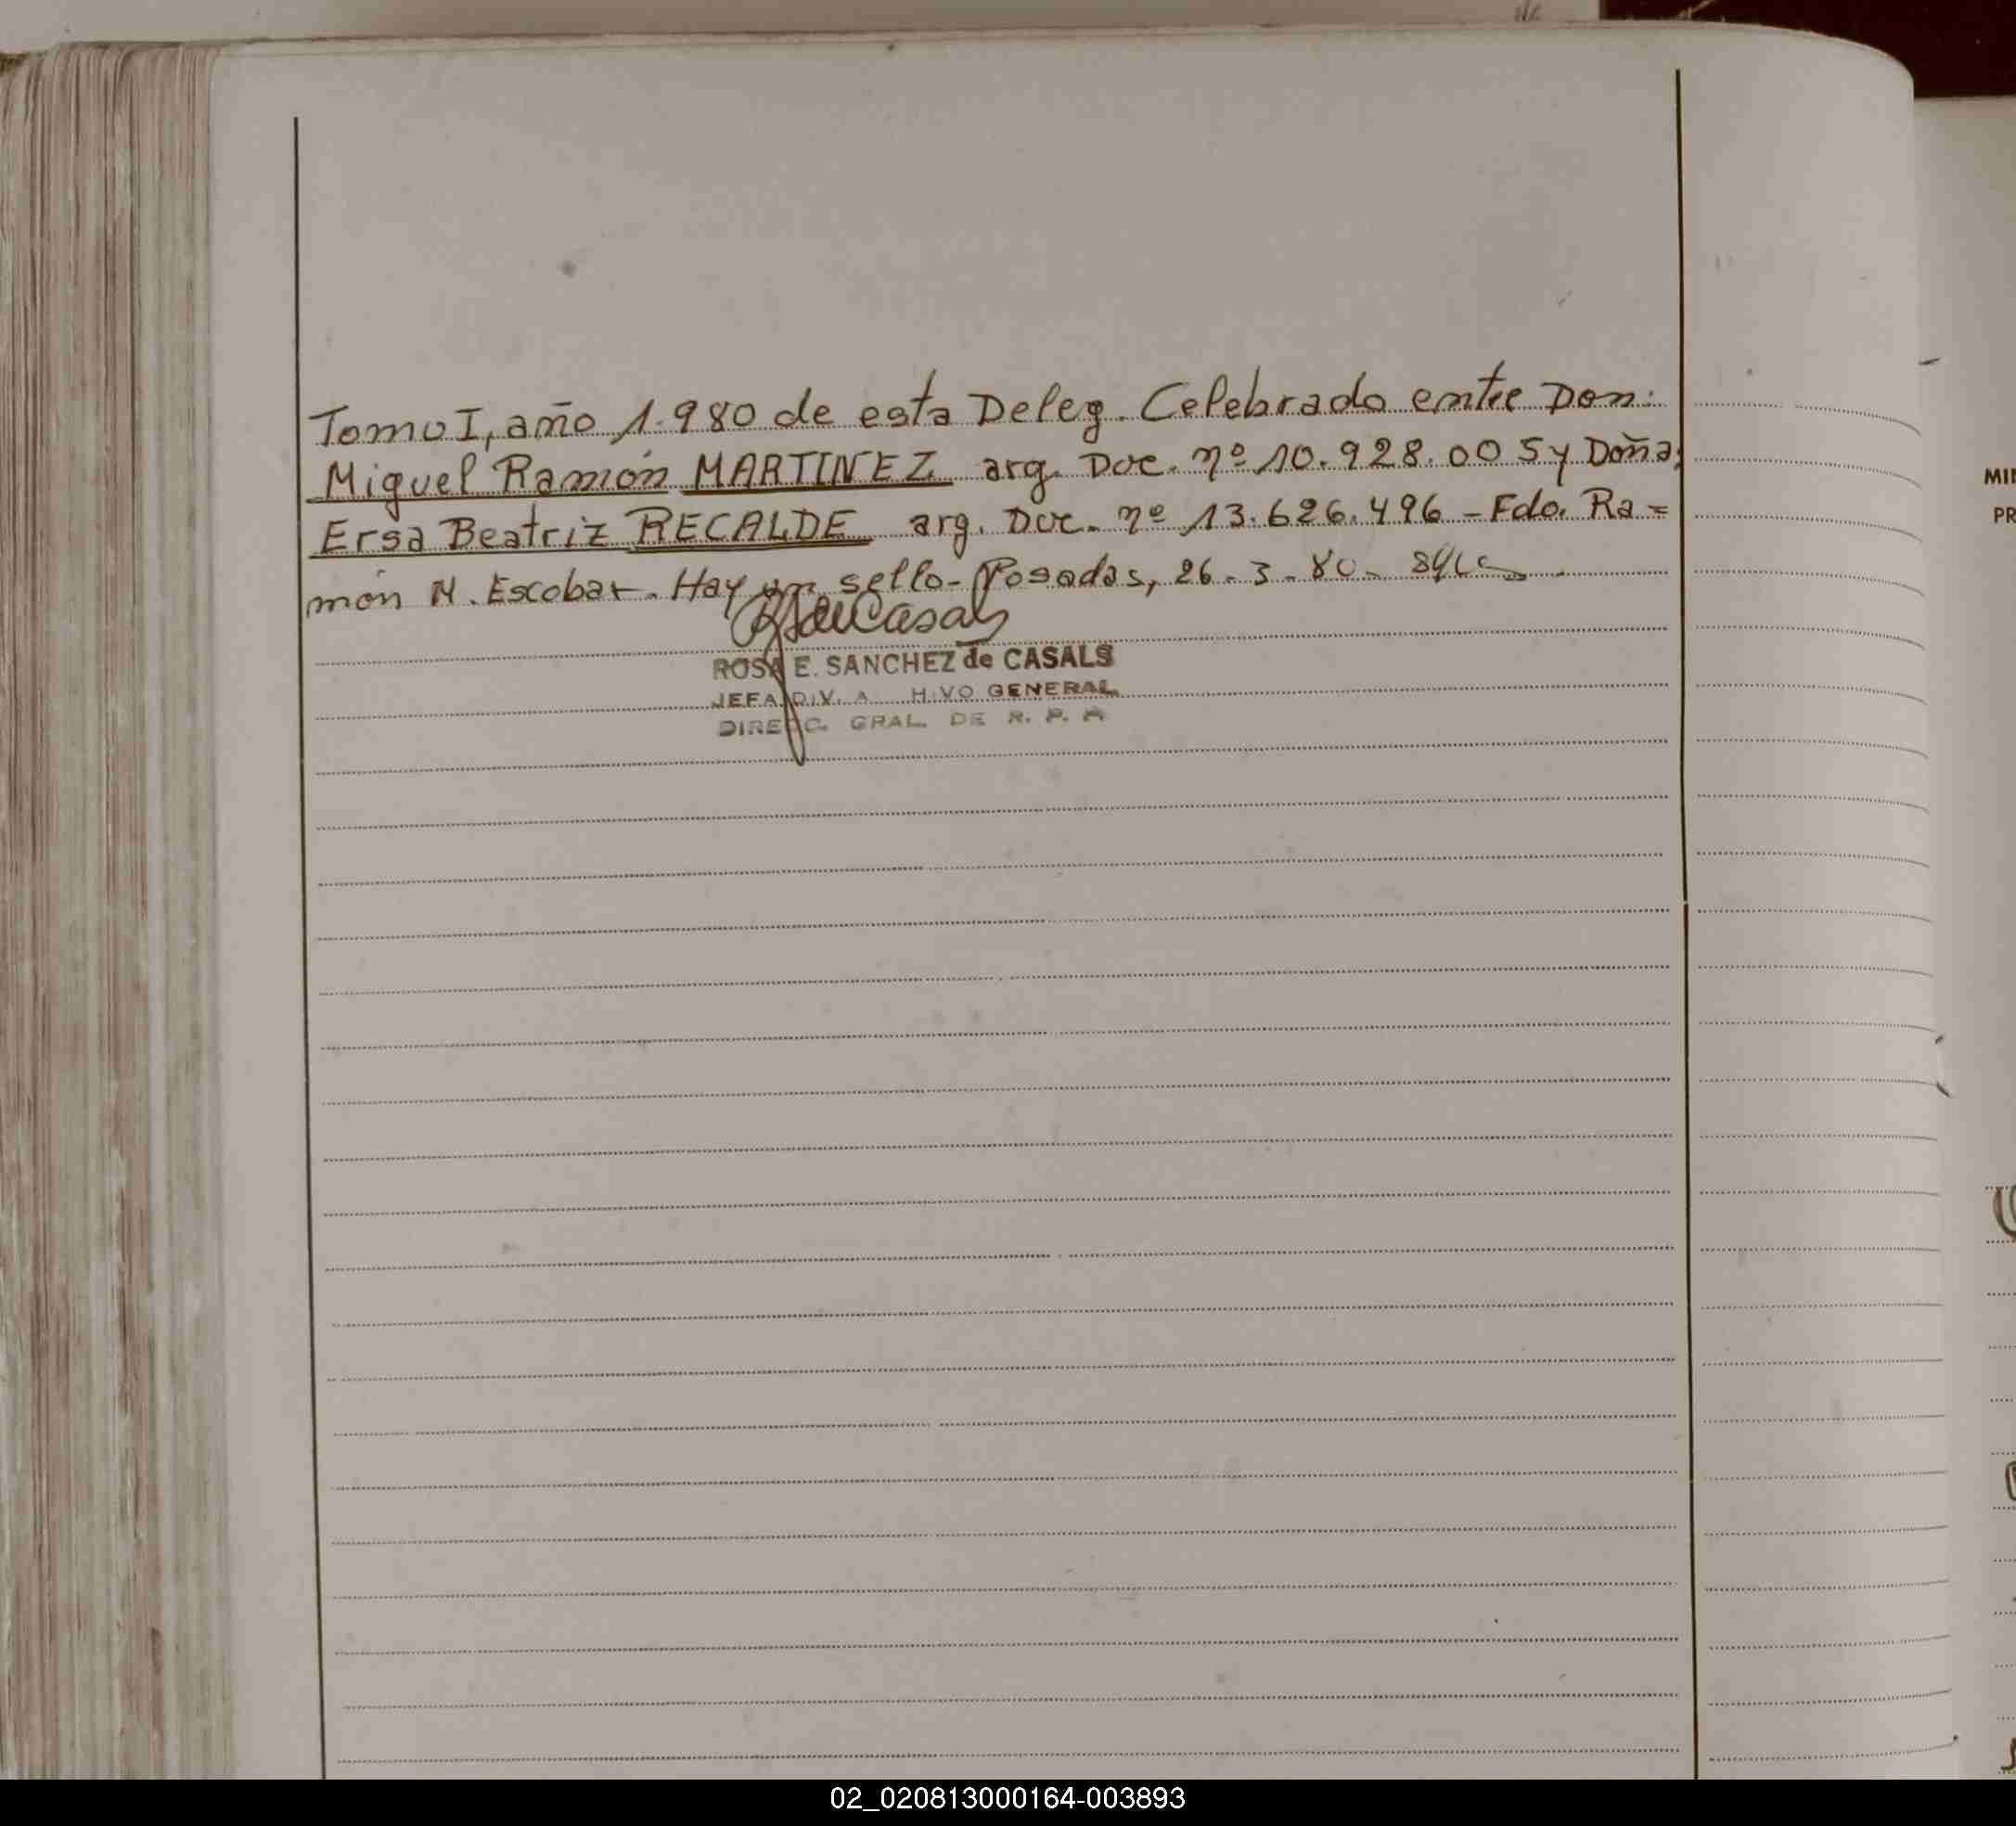 Tomo I, año 1.980 de esta Deleg. Celebrado entre Don:
Miguel Ramón MARTINEZ arg. Doc. nº 10.928.005 y Doña:
Ersa Beatriz RECALDE arg. Doc. nº 13.626.496 - Fdo. Ra=
món N. Escobar. Hay un sello - Posadas, 26-3-80-
ROSA E. SANCHEZ de CASALS
JEFA DIV. A HIVO GENERAL
DIRECC. GRAL. DE R. P.
MI
PR
02_020813000164-003893